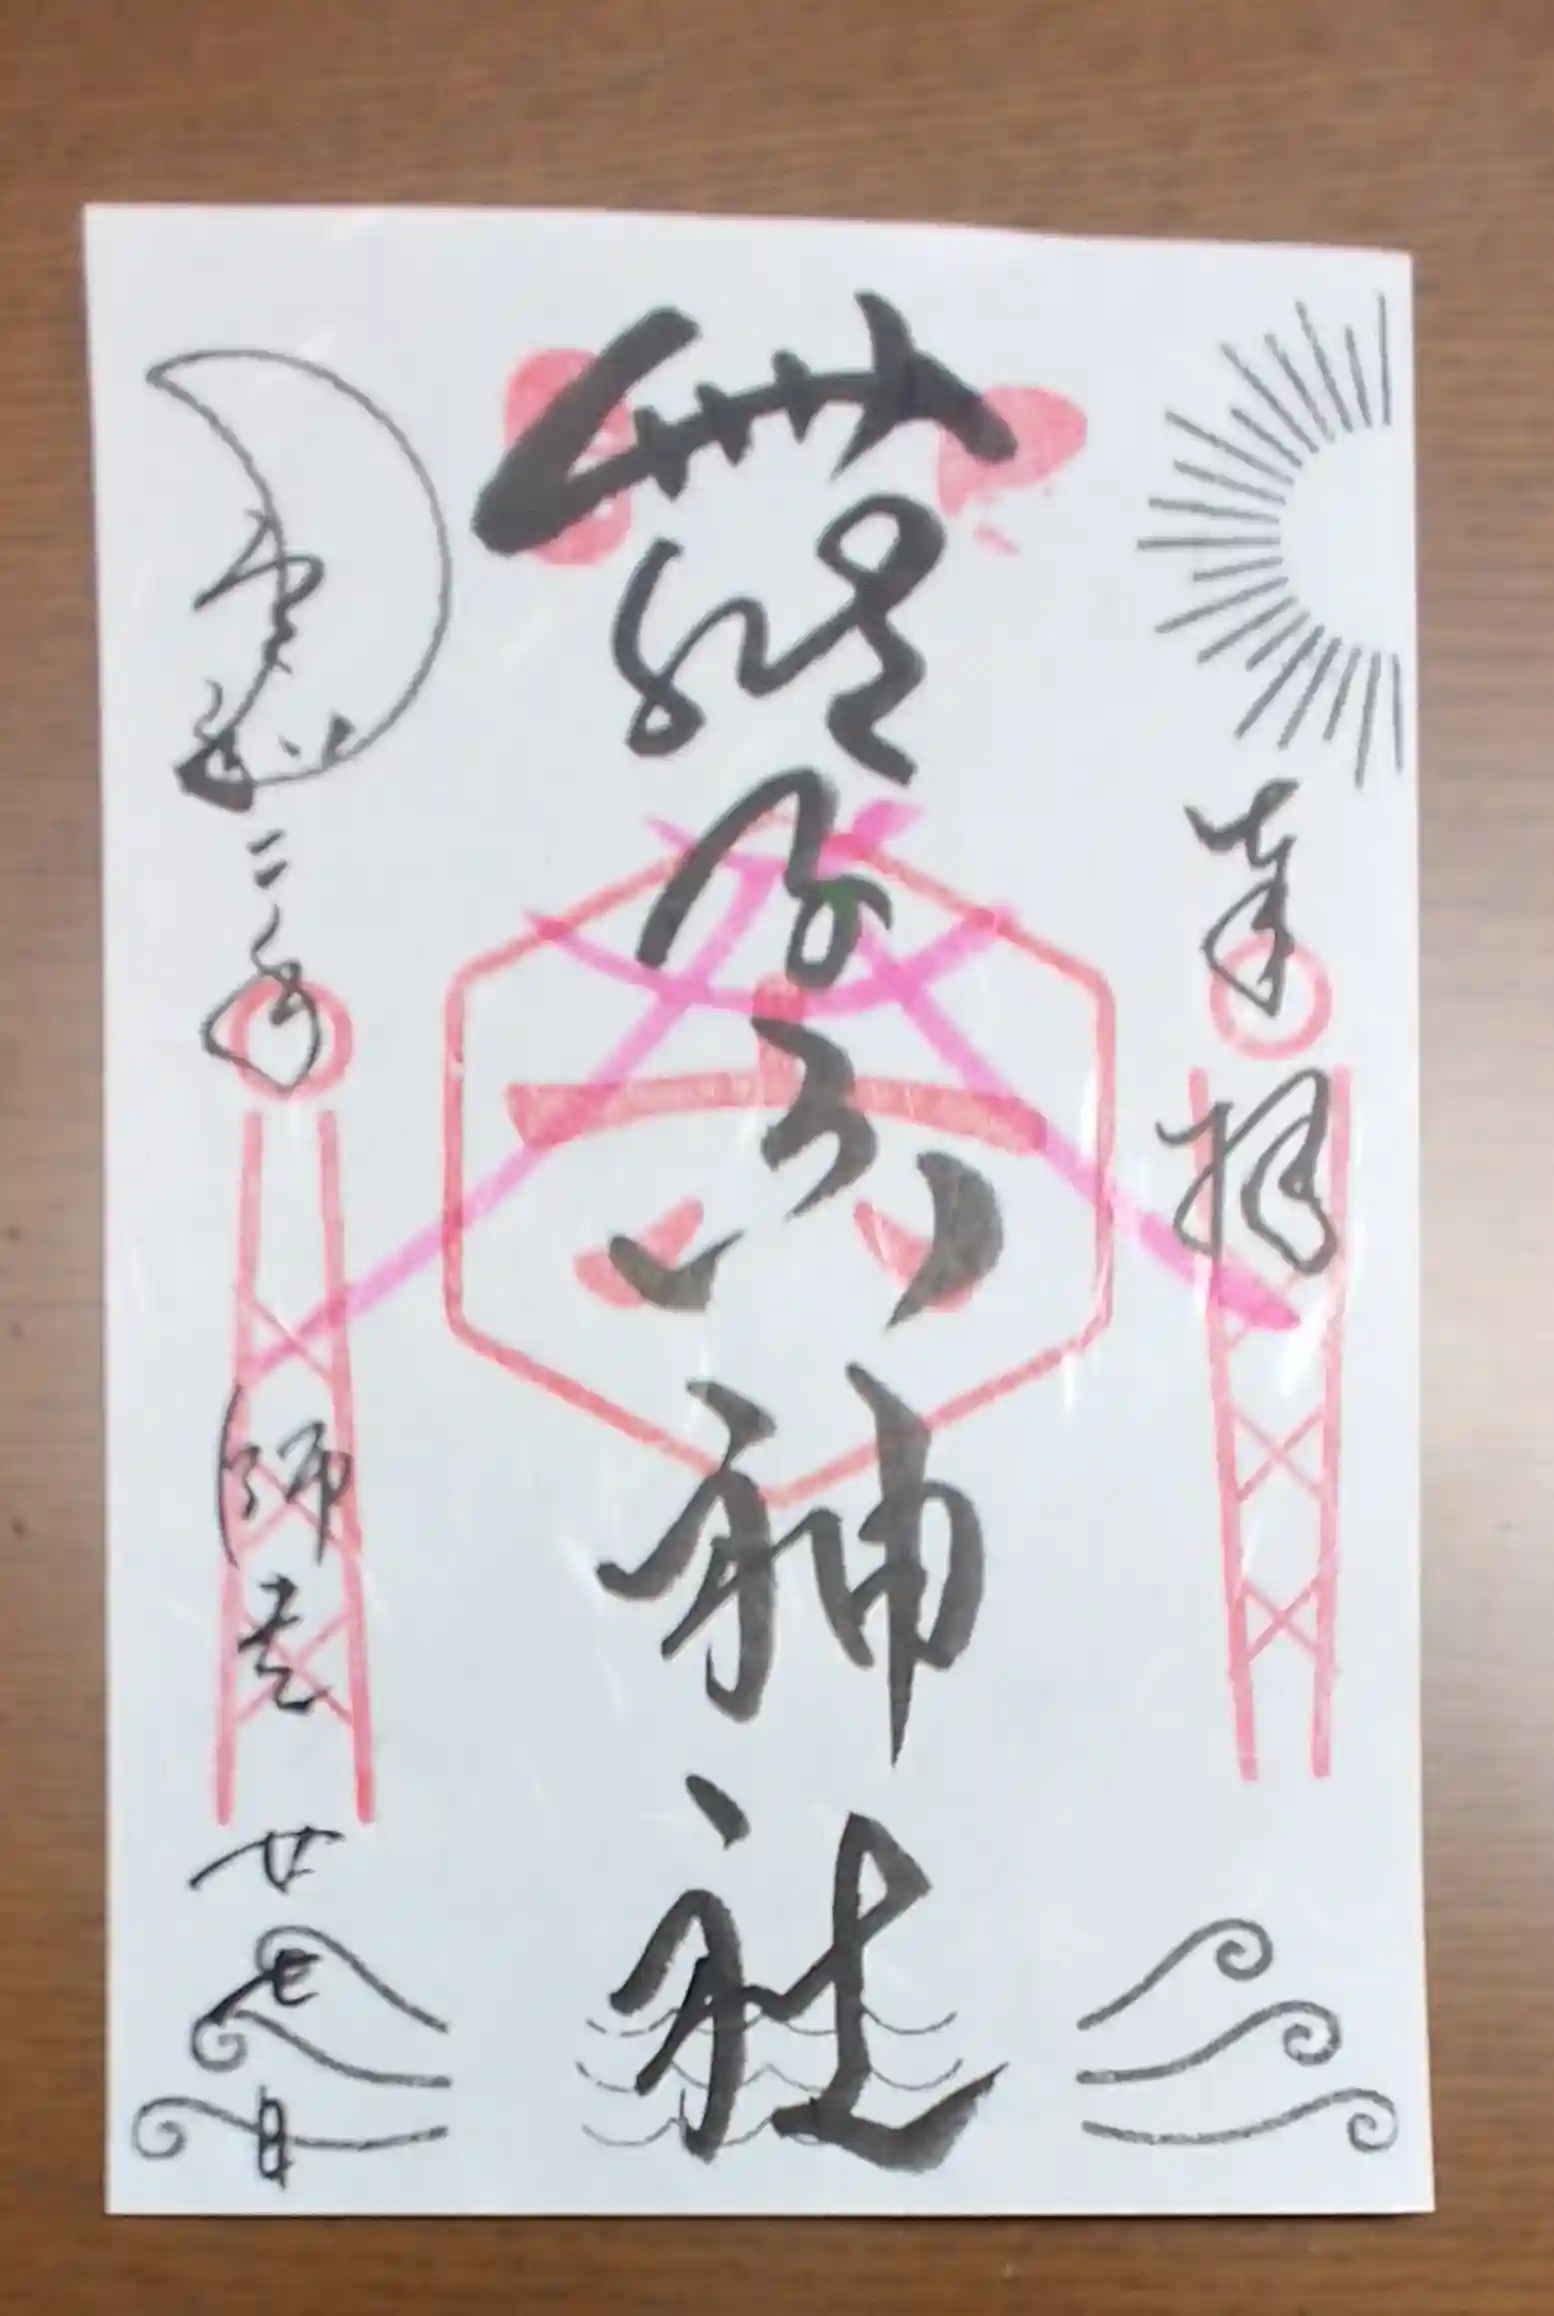 奉拝
六神社
令和二年 師走 廿七日